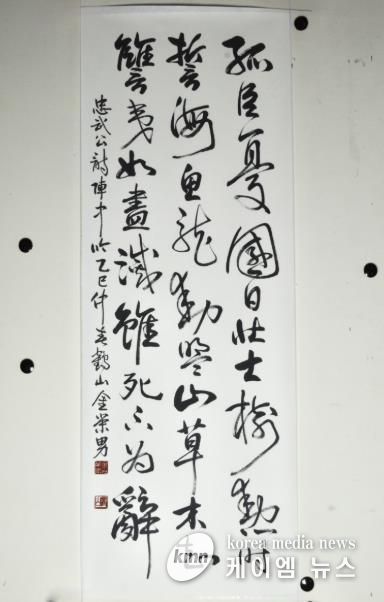 孤臣憂國日壯士樹勳時
誓海魚龍動盟山草木知
讐夷如盡滅雖死不為辭
忠武公詩陣中吟 乙巳仲春 鶴山 金榮男
kmn
korea media news
케이엠 뉴스